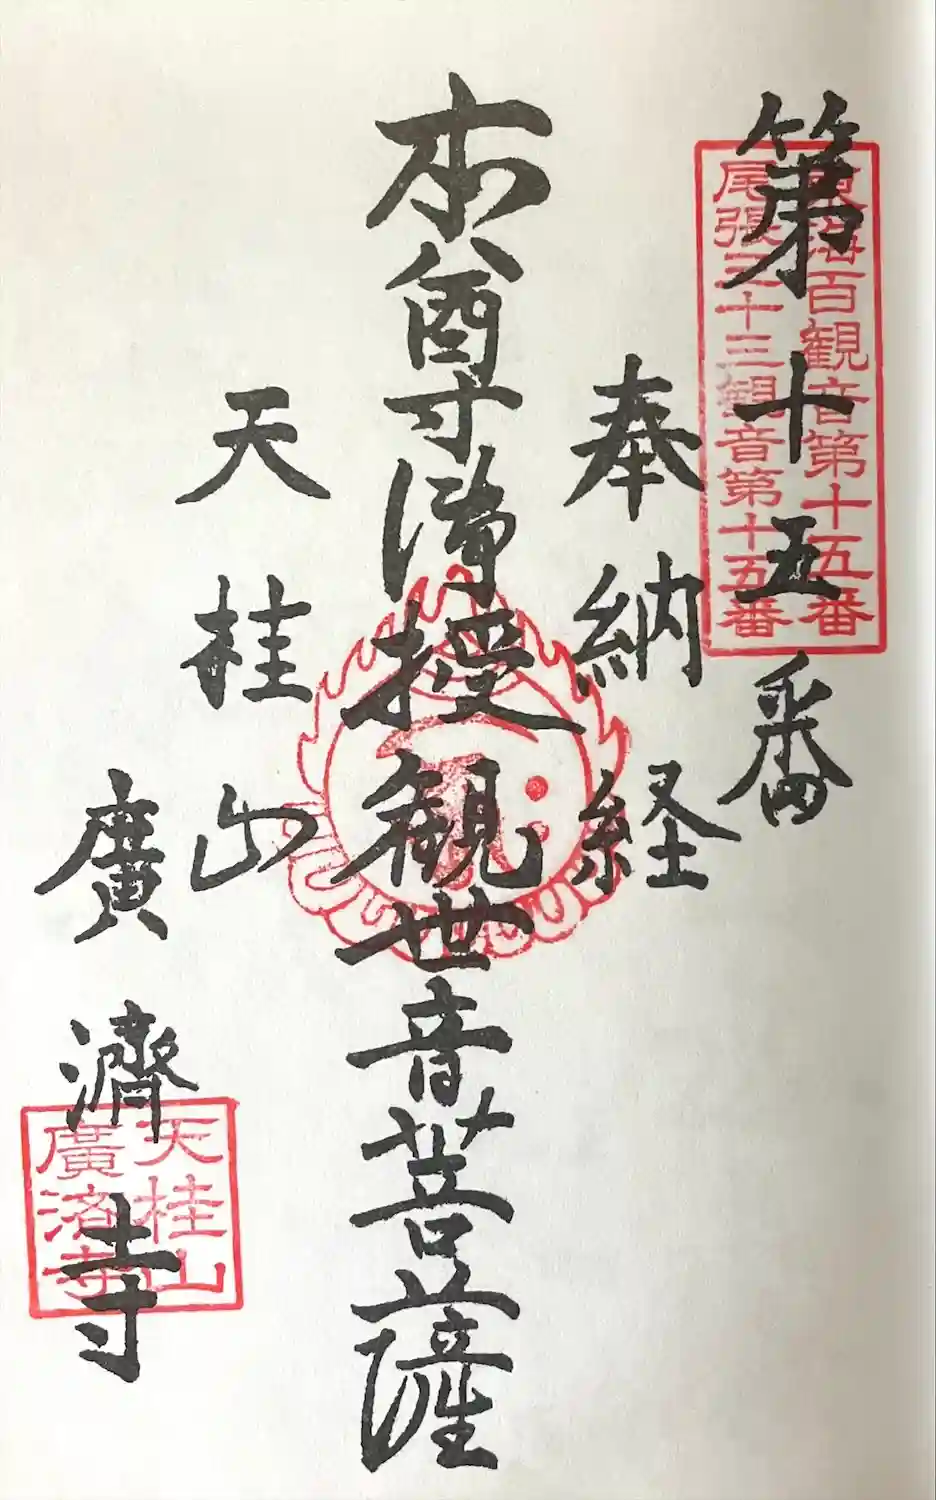 第十五番
東海百観音第十五番
尾張三十三観音第十五番
奉納経
本尊 授観世音菩薩
天桂山
廣濟寺
天桂山
廣済寺